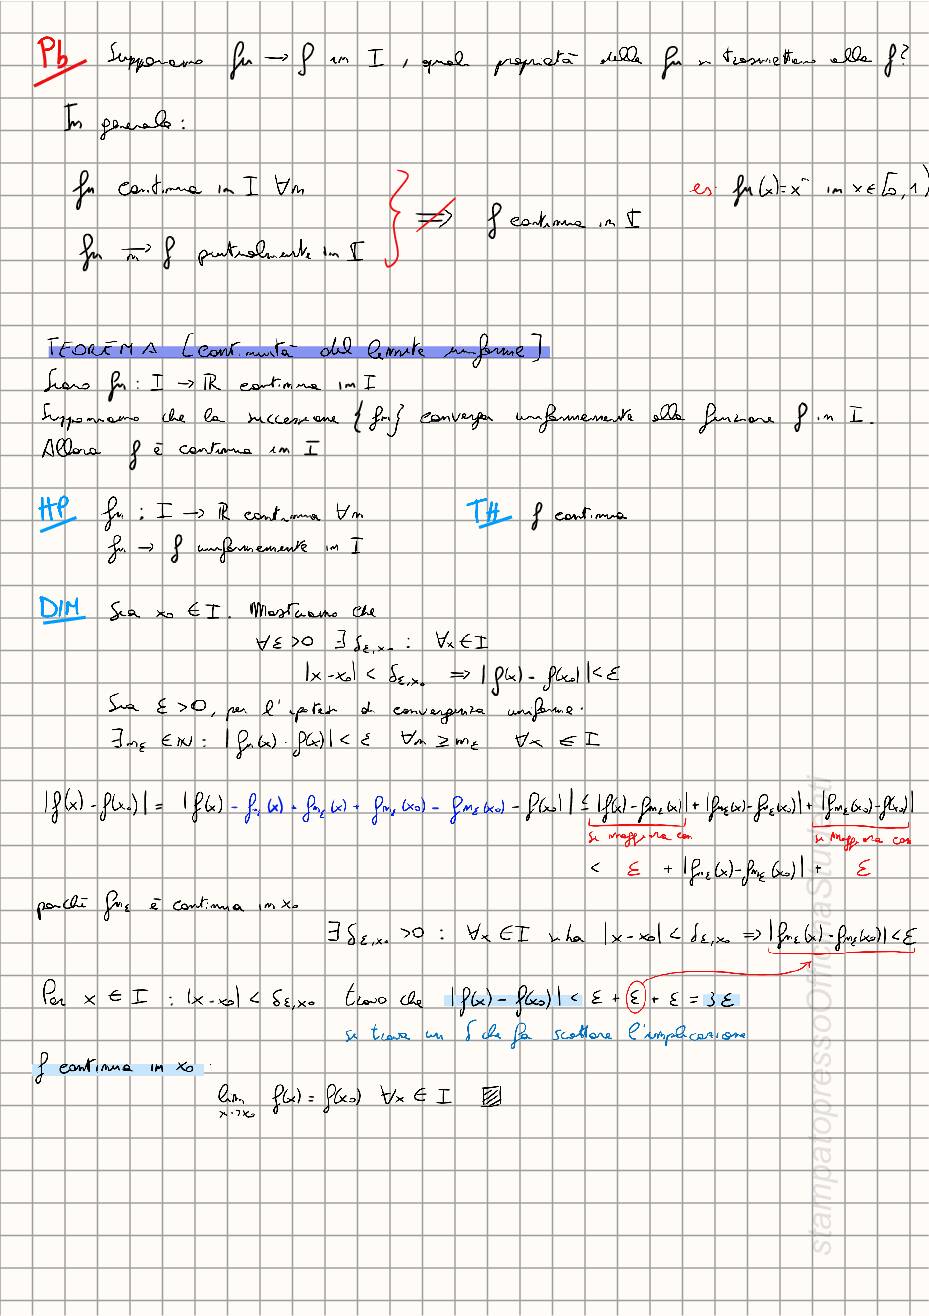 Pb Supponiamo fn → f in I, quali proprietà delle fn si trasmettono alla f?
In generale:
fn continua in I ∀n
es. fn(x)=x^n in x∈[0,1)
⇏ f continua in I
fn →n f puntualmente in I
TEOREMA [continuità del limite uniforme]
Siano fn: I → ℝ continua in I
Supponiamo che la successione {fn} converga uniformemente alla funzione f in I.
Allora f è continua in I
HP fn: I → ℝ continua ∀n TH f continua
fn → f uniformemente in I
DIM Sia x₀ ∈ I. Mostriamo che
∀ε>0 ∃δε,x₀ : ∀x∈I
|x-x₀| < δε,x₀ ⇒ |f(x) - f(x₀)| < ε
Sia ε>0, per l'ipotesi di convergenza uniforme:
∃nε ∈ ℕ: |fn(x) - f(x)| < ε ∀n ≥ nε ∀x ∈ I
|f(x) - f(x₀)| = |f(x) - fnε(x) + fnε(x) + fnε(x₀) - fnε(x₀) - f(x₀)| ≤ |f(x)-fnε(x)| + |fnε(x)-fnε(x₀)| + |fnε(x₀)-f(x₀)|
si maggiora con si maggiora con
< ε + |fnε(x)-fnε(x₀)| + ε
perché fnε è continua in x₀
∃δε,x₀ >0 : ∀x ∈ I si ha |x-x₀| < δε,x₀ ⇒ |fnε(x) - fnε(x₀)| < ε
Per x ∈ I : |x-x₀| < δε,x₀ trovo che |f(x) - f(x₀)| < ε + ε + ε = 3ε
si trova un δ che fa scattare l'implicazione
f continua in x₀ :
lim x→x₀ f(x) = f(x₀) ∀x ∈ I
stampatopressoOfficinaStudenti